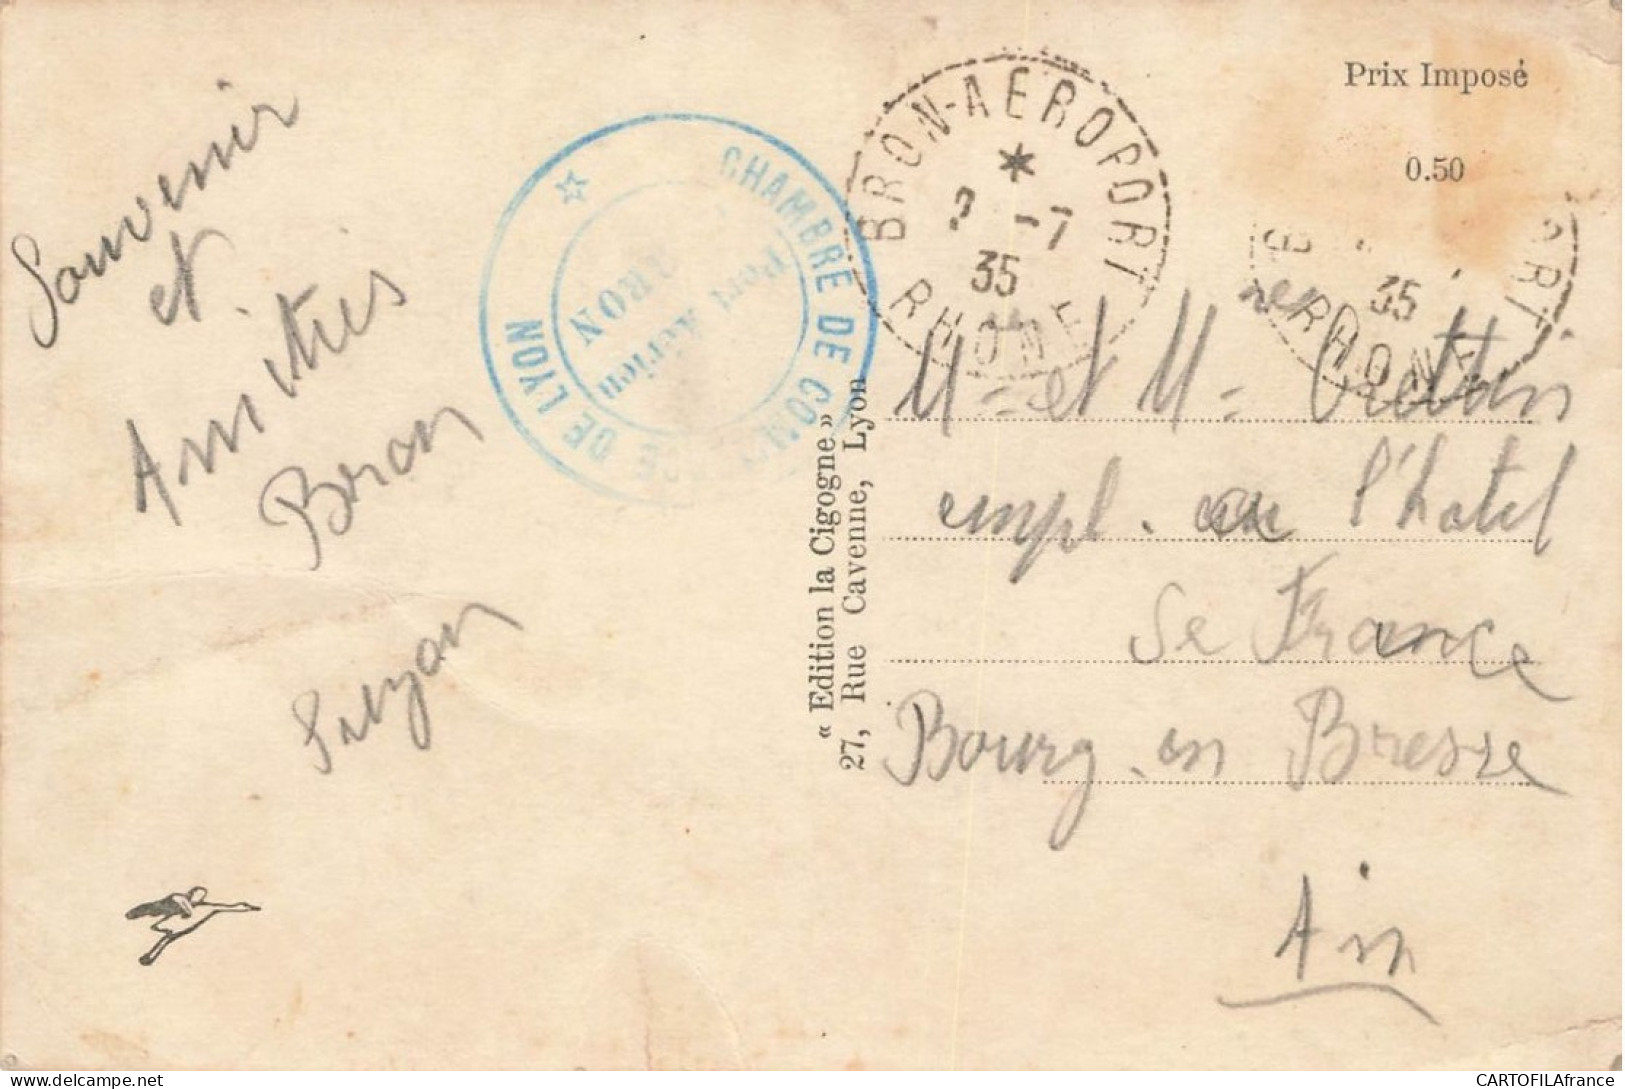 Souvenir
et
Amitiés
Beron
CHAMBRE DE COMMERCE DE LYON
Port Aérien
BRON
« Edition la Cigogne »
27, Rue Cavenne, Lyon
BRON-AEROPORT
2 -7
35
RHONE
Prix Imposé
0.50
35
RHONE
M = et M =
empl. au l'hotel
de France
Bourg-en Bresse
Ain
CARTOFILAfrance